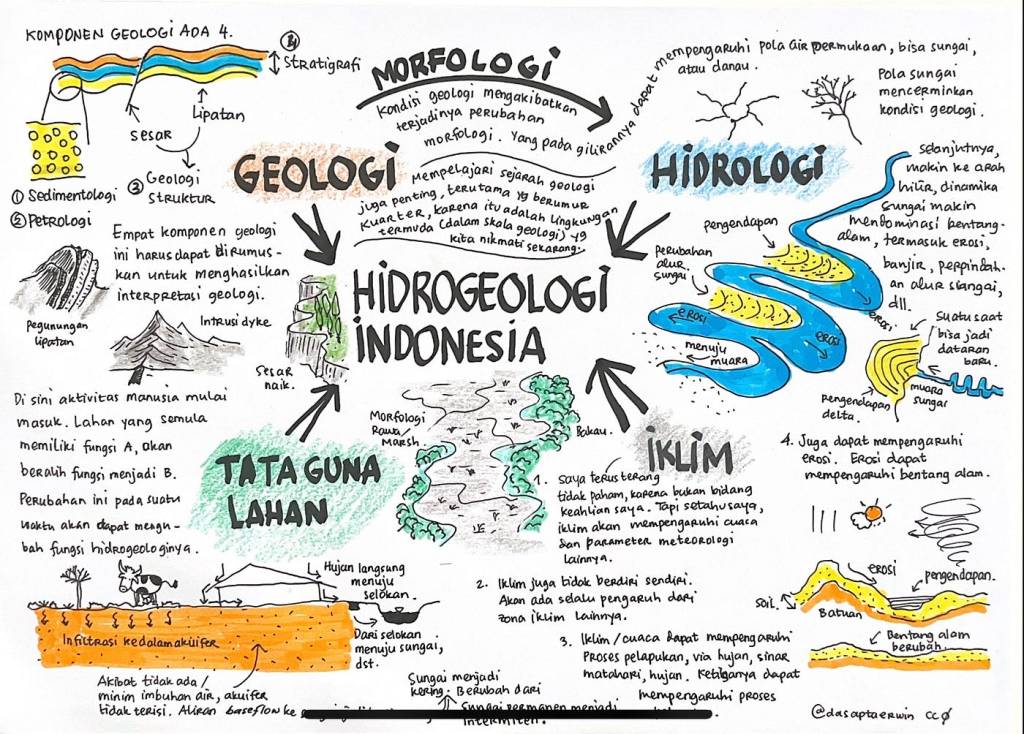 KOMPONEN GEOLOGI ADA 4.
④
Stratigrafi
sesar
Lipatan
① Sedimentologi
② Petrologi
③ Geologi
Struktur
GEOLOGI
Empat komponen geologi
ini harus dapat dirumus-
kan untuk menghasilkan
interpretasi geologi.
Pegunungan
lipatan
Intrusi dyke
Sesar
naik.
MORFOLOGI
Kondisi geologi mengakibatkan
terjadinya perubahan
morfologi. Yang pada gilirannya dapat mempengaruhi pola air permukaan, bisa sungai,
atau danau.
Mempelajari sejarah geologi
juga penting, terutama yg berumur
Kuarter, karena itu adalah lingkungan
termuda (dalam skala geologi) yg
kita nikmati sekarang.
HIDROGEOLOGI
INDONESIA
Pola sungai
mencerminkan
kondisi geologi.
HIDROLOGI
Selanjutnya,
makin ke arah
hilir, dinamika
sungai makin
mendominasi bentang-
alam, termasuk erosi,
banjir, perpindah-
an alur sungai,
dll.
Pengendapan
Perubahan
alur
sungai
erosi
erosi
erosi
menuju
muara
Suatu saat
bisa jadi
dataran
baru.
muara
sungai
Pengendapan
delta.
Di sini aktivitas manusia mulai
masuk. Lahan yang semula
memiliki fungsi A, akan
beralih fungsi menjadi B.
Perubahan ini pada suatu
waktu akan dapat mengu-
bah fungsi hidrogeologinya.
TATA GUNA
LAHAN
Morfologi
Rawa/
Marsh.
Bakau.
IKLIM
1. Saya terus terang
tidak paham, karena bukan bidang
keahlian saya. Tapi setahu saya,
iklim akan mempengaruhi cuaca
dan parameter meteorologi
lainnya.
2. Iklim juga tidak berdiri sendiri.
Akan ada selalu pengaruh dari
zona iklim lainnya.
3. Iklim/cuaca dapat mempengaruhi
Proses pelapukan, via hujan, sinar
matahari, hujan. Ketiganya dapat
mempengaruhi proses
4. Juga dapat mempengaruhi
erosi. Erosi dapat
mempengaruhi bentang alam.
erosi
pengendapan.
Soil
Batuan
Bentang alam
berubah.
Hujan langsung
menuju
selokan.
Dari selokan
menuju sungai,
dst.
Infiltrasi kedalam akuifer
Akibat tidak ada/
minim imbuhan air, akuifer
tidak terisi. Aliran baseflow ke
Sungai menjadi
kering. Berubah dari
Sungai permanen menjadi
intermiten.
@dasaptaerwin CC0